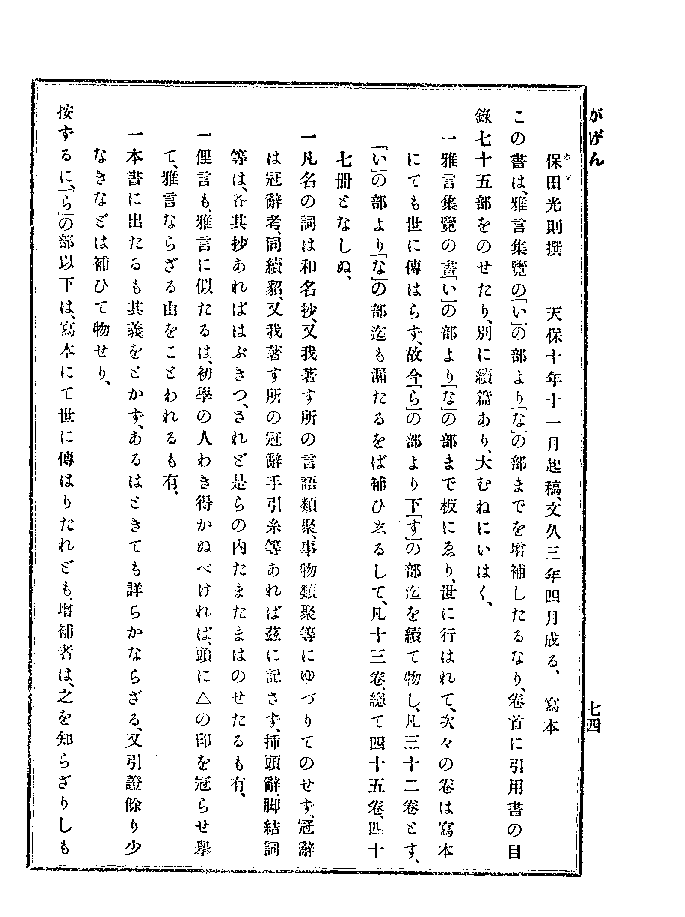 がげん
七四
保田光則撰　天保十年十一月起稿、文久三年四月成る、　寫本
この書は、雅言集覽の「い」の部より「な」の部までを增補したるなり、卷首に引用書の目
錄七十五部をのせたり、別に續篇あり、大むねにいはく、
一雅言集覽の書「い」の部より「な」の部まで板にゑり、世に行はれて、次々の卷は寫本
にても世に傳はらず、故今「ら」の部より下「す」の部迄を續て物し、凡三十二卷とす、
「い」の部より「な」の部迄も漏たるをば補ひゑるして、凡十三卷、總て四十五卷、四十
七册となしぬ、
一凡名の詞は和名抄、又我著す所の言語類聚、事物類聚等にゆづりてのせず、冠辭
は冠辭考、同續貂、又我著す所の冠辭手引糸等あれば茲に記さず、揷頭辭、脚結詞
等は、各其抄あればはぶきつ、されど是らの内たまたまはのせたるも有、
一俚言も、雅言に似たるは、初學の人わき得かぬべければ、頭に△の印を冠らせ擧
て、雅言ならざる由をことわれるも有、
一本書に出たるも其義をとかず、あるはときても詳らかならざる、又引證餘り少
なきなどは補ひて物せり、
按ずるに、「ら」の部以下は、寫本にて世に傳はりたれども、增補者は、之を知らざりしも